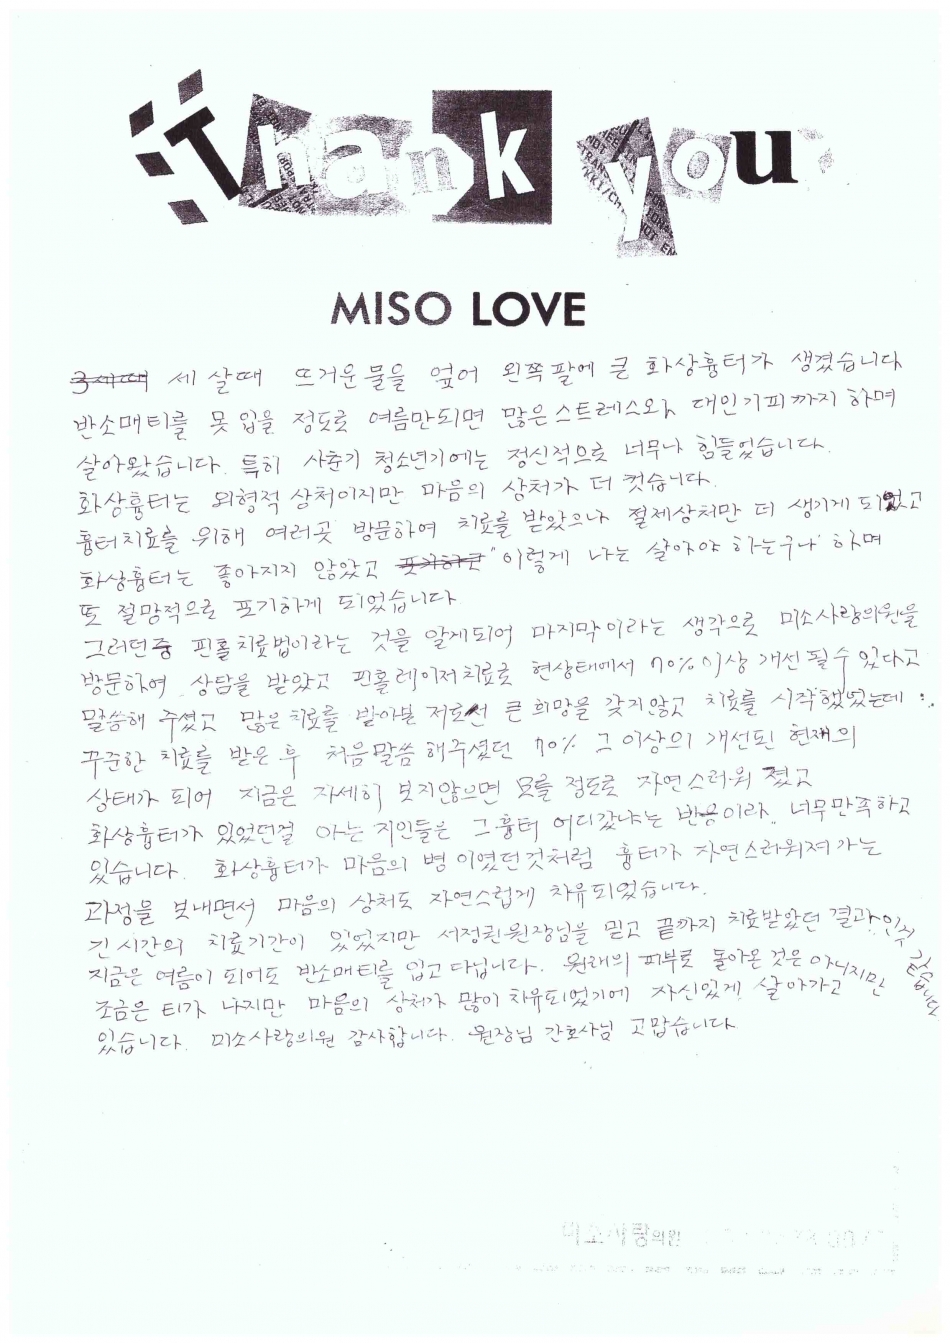 Thank you
MISO LOVE
세 살때 뜨거운물을 엎어 왼쪽팔에 큰 화상흉터가 생겼습니다
반소매티를 못 입을 정도로 여름만되면 많은스트레스와 대인기피까지 하며
살아왔습니다. 특히 사춘기 청소년기에는 정신적으로 너무나 힘들었습니다.
화상흉터는 외형적 상처이지만 마음의 상처가 더 컷습니다.
흉터치료를 위해 여러곳 방문하여 치료를 받았으나 절제상처만 더 생기게 되었고
화상흉터는 좋아지지 않았고 "이렇게 나는 살아야 하는구나" 하며
또 절망적으로 포기하게 되었습니다
그러던중 핀홀치료법이라는 것을 알게되어 마지막이라는 생각으로 미소사랑의원을
방문하여 상담을 받았고 핀홀레이저치료로 현상태에서 70%이상 개선될수 있다고
말씀해 주셨고 많은치료를 받아본 저로선 큰 희망을 갖지않고 치료를 시작했었는데
꾸준한 치료를 받은 후 처음말씀 해주셨던 70% 그 이상의 개선된 현재의
상태가 되어 지금은 자세히 보지않으면 모를 정도로 자연스러워 졌고
화상흉터가 있었던걸 아는 지인들은 그흉터 어디갔냐는 반응이라.. 너무만족하고
있습니다. 화상흉터가 마음의 병 이였던것처럼 흉터가 자연스러워져 가는
과정을 보내면서 마음의 상처도 자연스럽게 치유되었습니다.
긴 시간의 치료기간이 있었지만 서정권원장님을 믿고 끝까지 치료받았던 결과인거 같습니다
지금은 여름이 되어도 반소매티를 입고 다닙니다. 원래의 피부로 돌아온 것은 아니지만
조금은 티가 나지만 마음의 상처가 많이 치유되었기에 자신있게 살아가고
있습니다. 미소사랑의원 감사합니다. 원장님 간호사님 고맙습니다